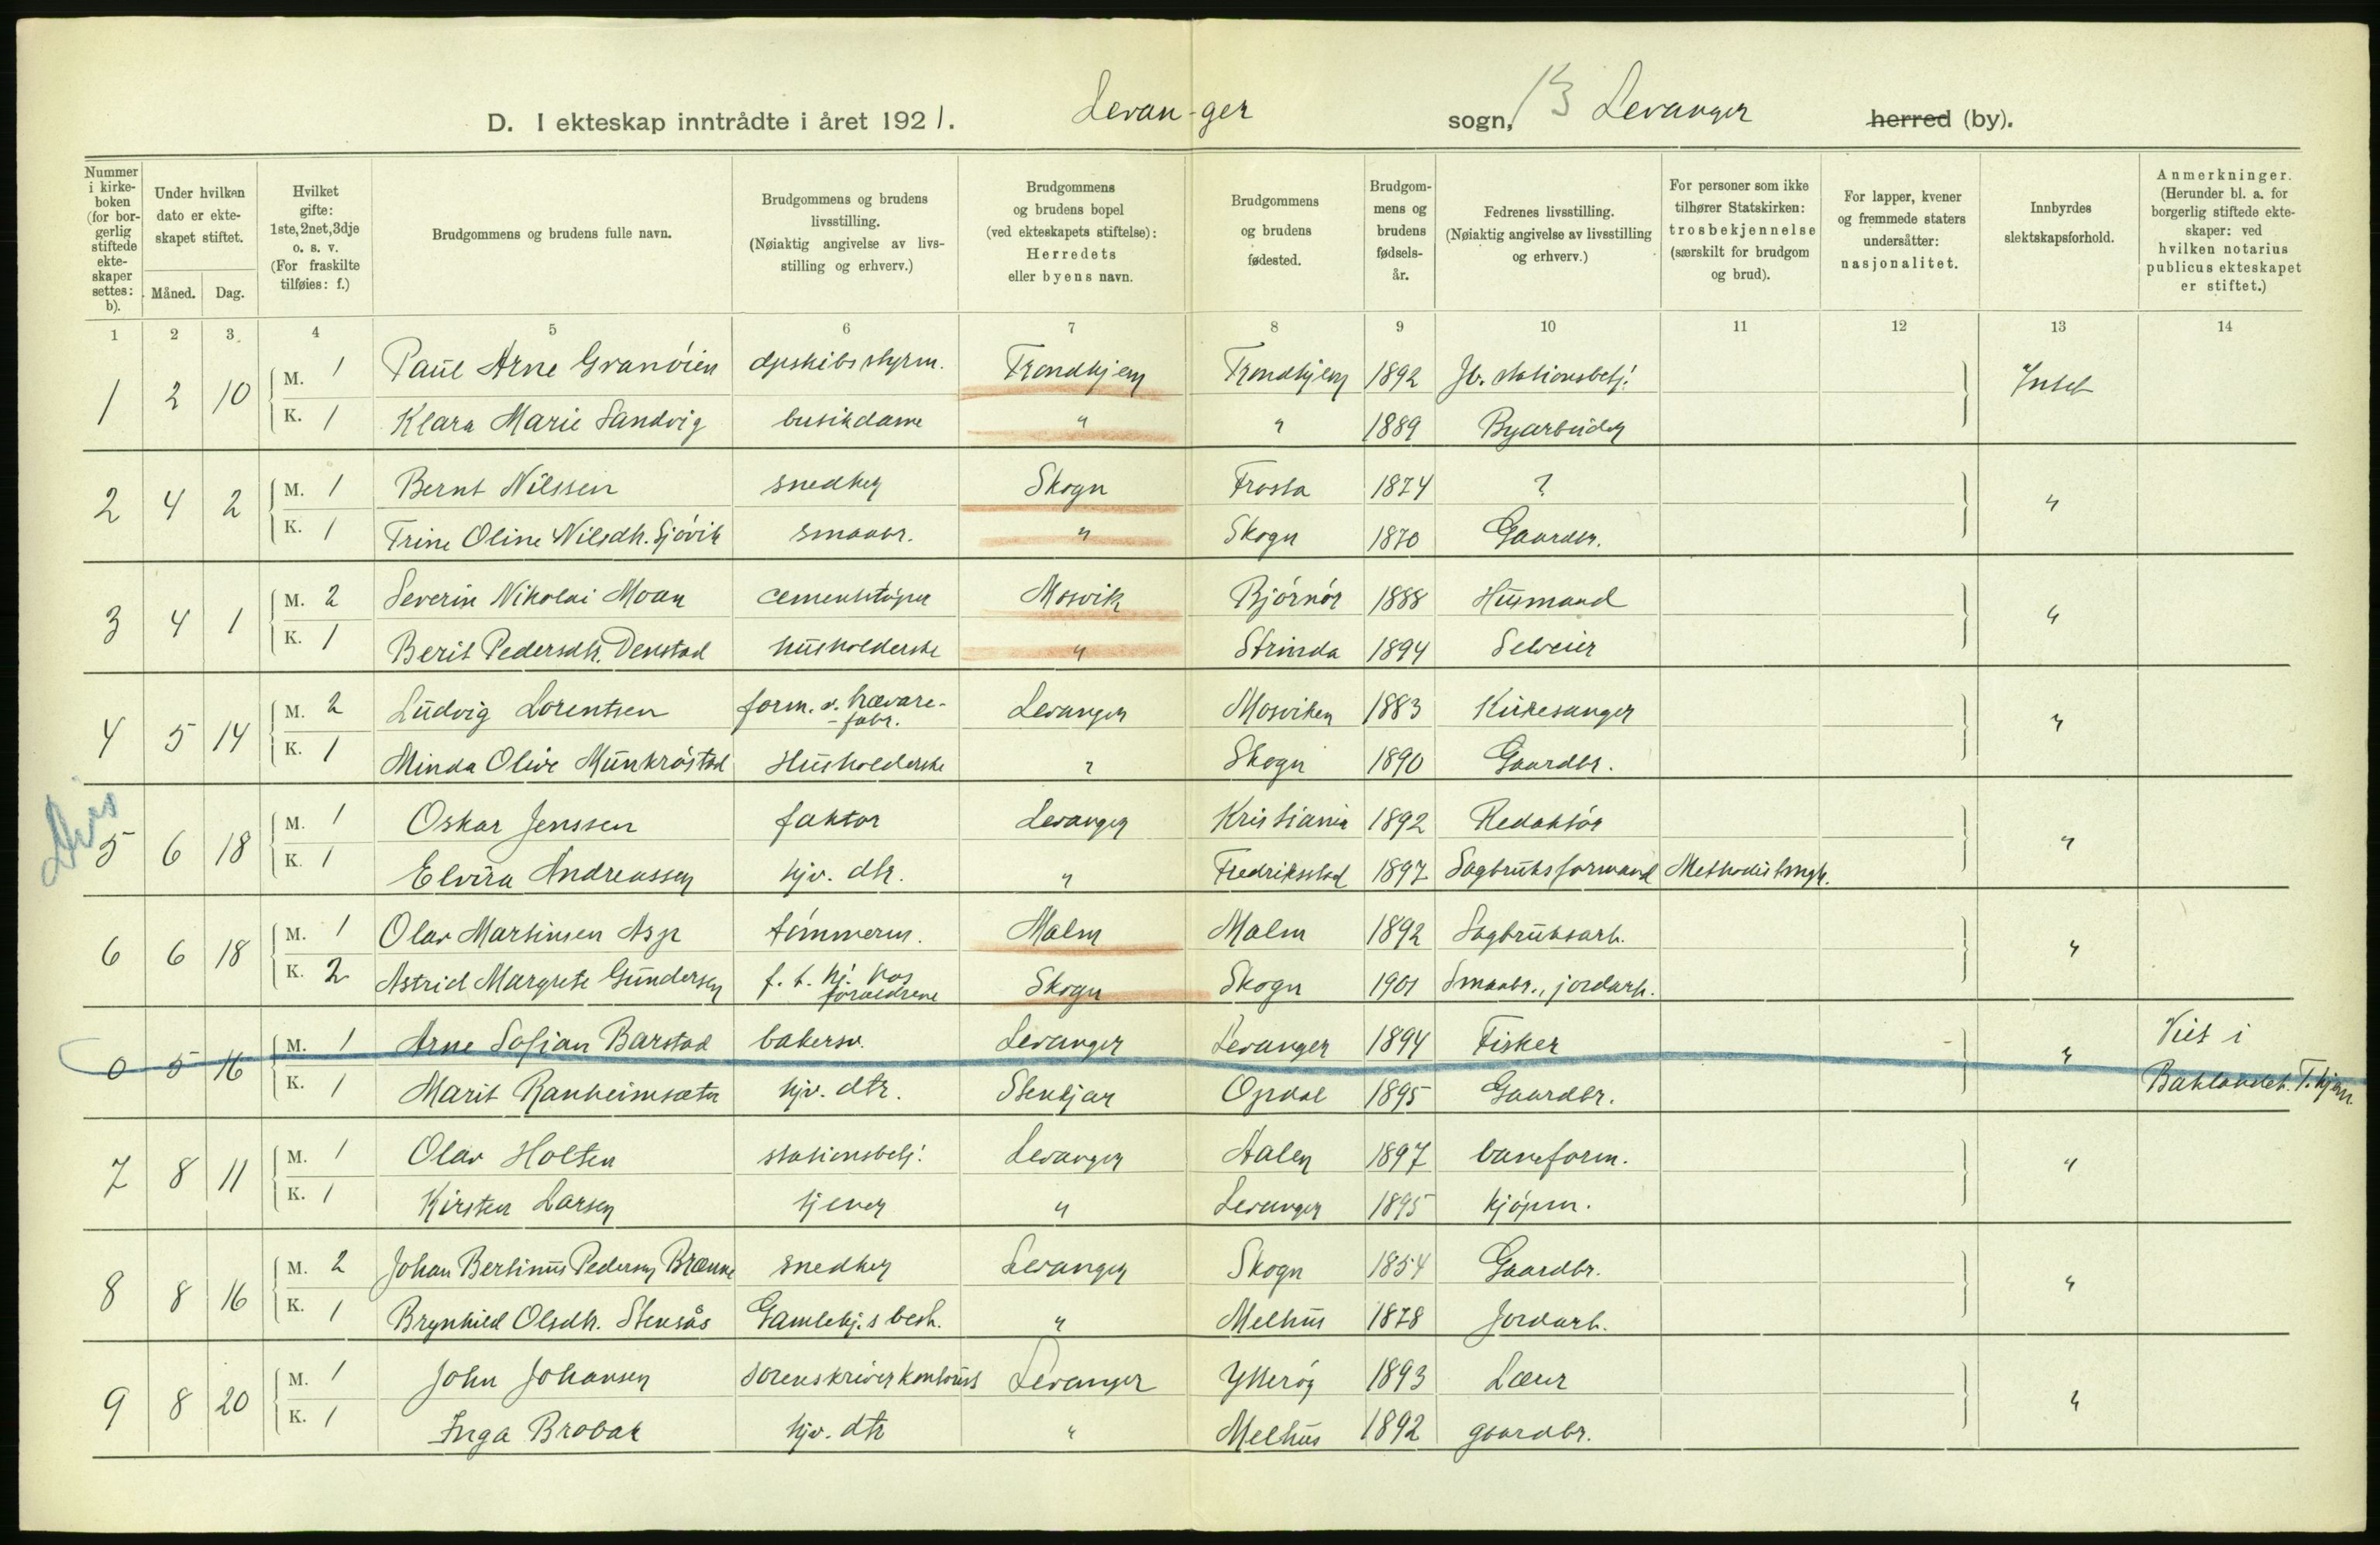 D. I ekteskap inntrådte i året 1921. Levanger sogn, 13 Levanger herred (by).
Nummer i kirkeboken (for borgerlig stiftede ekteskaper settes: b).
Under hvilken dato er ekteskapet stiftet.
Måned. Dag.
Hvilket gifte: 1ste, 2net, 3dje o. s. v. (For fraskilte tilføies: f.)
Brudgommens og brudens fulle navn.
Brudgommens og brudens livsstilling. (Nøiaktig angivelse av livsstilling og erhverv.)
Brudgommens og brudens bopel (ved ekteskapets stiftelse): Herredets eller byens navn.
Brudgommens og brudens fødested.
Brudgommens og brudens fødselsår.
Fedrenes livsstilling. (Nøiaktig angivelse av livsstilling og erhverv.)
For personer som ikke tilhører Statskirken: trosbekjennelse (særskilt for brudgom og brud).
For lapper, kvener og fremmede staters undersåtter: nasjonalitet.
Innbyrdes slektskapsforhold.
Anmerkninger. (Herunder bl. a. for borgerlig stiftede ekteskaper: ved hvilken notarius publicus ekteskapet er stiftet.)
1 2 3. 4 5 6 7 8 9 10 11 12 13 14
1 2 10 M. 1 Paul Arne Granøien dpskibsstyrm. Trondhjem Trondhjem 1892 Jb. stationsbetj. Intet
K. 1 Klara Marie Sandvig butikdame " " 1889 Byarbeider
2 4 2 M. 1 Bernt Nilssen snedker Skogn Frosta 1874 ? "
K. 1 Trine Oline Nilsdtr. Sjøvik smaabr. " Skogn 1870 Gaardbr.
3 4 1 M. 2 Severin Nikolai Moan cementstøper Mosvik Bjørnør 1888 Husmand "
K. 1 Berit Pedersdtr. Denstad husholderske " Strinda 1894 Selveier
4 5 14 M. 2 Ludvig Lorentsen form. v. trævare-
-fabr. Levanger Mosviken 1883 Kirkesanger "
K. 1 Minda Olive Munkrøstad Husholderske " Skogn 1890 Gaardbr.
5 6 18 M. 1 Oskar Jenssen faktor Levanger Kristiania 1892 Redaktør "
K. 1 Elvira Andreassen hjv. dtr. " Fredrikstad 1897 Sagbruksformand Methodistmgh.
6 6 18 M. 1 Olav Martinsen Asp tømmerm. Malm Malm 1892 Sagbruksarb. "
K. 2 Astrid Margrete Gundersen f. t. hj. hos
forældrene Skogn Skogn 1901 Smaabr., jordarb.
0 5 16 M. 1 Arne Sofian Barstad bakersv. Levanger Levanger 1894 Fisker " Viet i
K. 1 Marit Ranheimsæter hjv. dtr. Stenkjær Opdal 1895 Gaardbr. Baklandet. T.hjem
7 8 11 M. 1 Olav Holten stationsbetj. Levanger Aalen 1897 baneform. "
K. 1 Kirsten Larsen tjener " Levanger 1895 kjøpm.
8 8 16 M. 2 Johan Bertinus Pedersen Brænne snedker Levanger Skogn 1854 Gaardbr. "
K. 1 Brynhild Olsdtr. Stensås Gamlehj.s best. " Melhus 1878 Jordarb.
9 8 20 M. 1 John Johansen Levanger Ytterøy 1893 Lærer "
K. 1 Inga Brobak hjv. dtr " Melhus 1892 gaardbr.